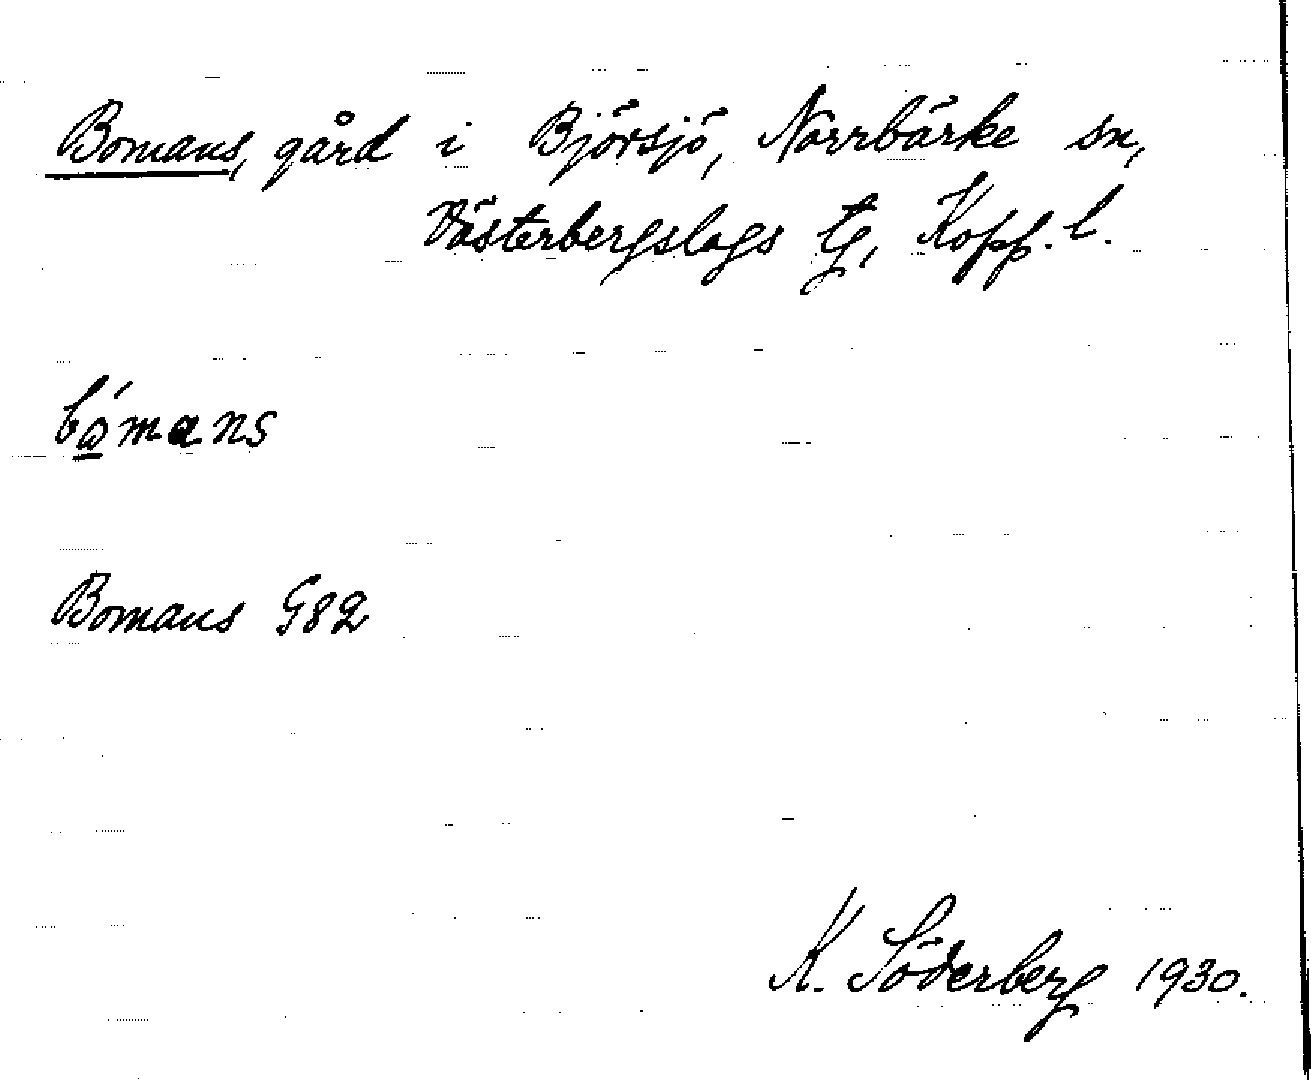 Bomans, gård i Björsjö, Norrbärke sn,
Västerbergslags tg, Kopp. l.
bó̲mans
Bomans G82
K. Söderberg 1930.